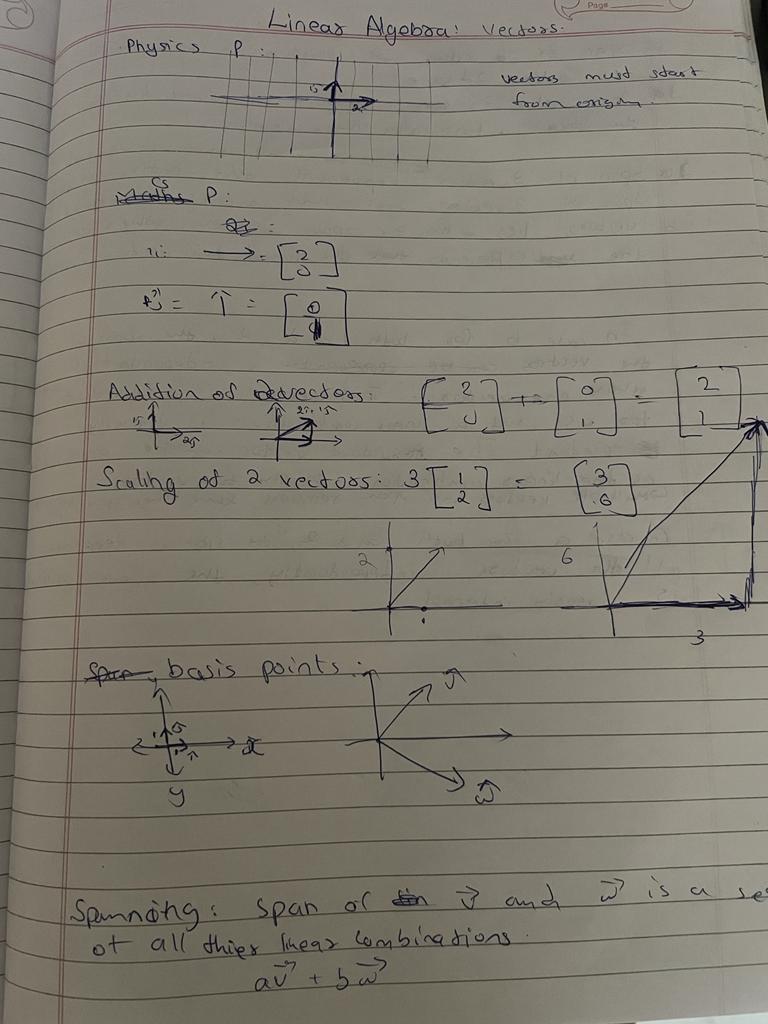 Page
Linear Algebra: vectors.
Physics P:
vectors must start
from origin.
2
Cs
Maths P:
→ = [2 0]
= ↑ = [0 1]
Addition of 2 vectors: [2 0] + [0 1] = [2 1]
Scaling of 2 vectors: 3 [1 2] = [3 6]
2
6
1
3
Span, basis points:
y
w
Spanning: Span of v and w is a se
of all thier linear combinations.
av + bw